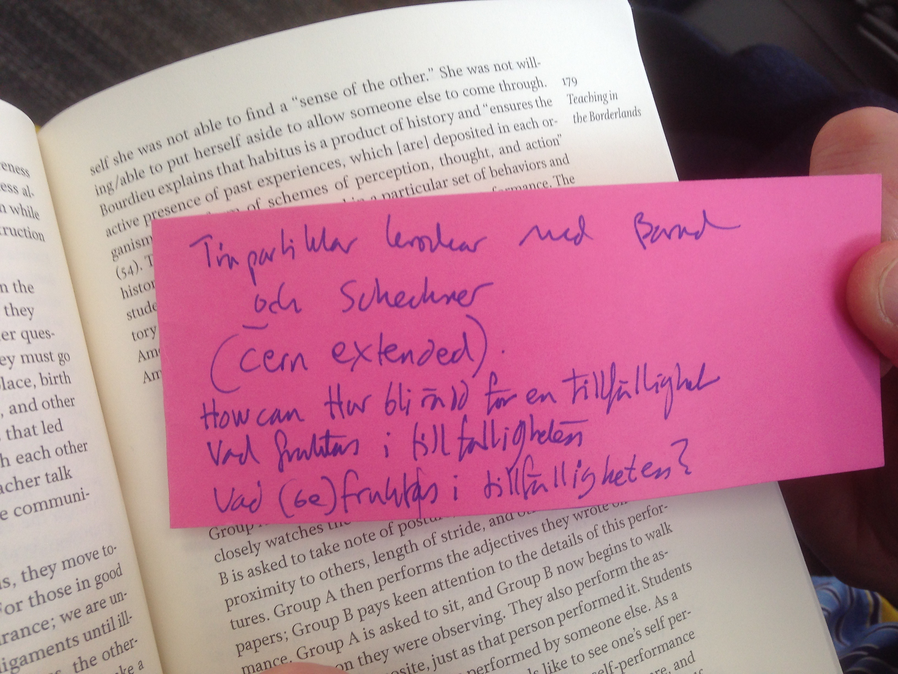 eness
ess al-
n while
ruction
n the
they
er ques-
ey must go
lace, birth
, and other
that led
h each other
acher talk
e communi-
s, they move to-
For those in good
rance; we are un-
ligaments until ill-
the other-
ake a
self she was not able to find a “sense of the other.” She was not will-
ing/able to put herself aside to allow someone else to come through.
Bourdieu explains that habitus is a product of history and “ensures the
active presence of past experiences, which [are] deposited in each or-
ganism of schemes of perception, thought, and action”
(54). T a particular set of behaviors and
histor formance. The
stude
tory
Ame
Am
179
Teaching in
the Borderlands
partiklar med Barad
och Schechner
(cern extended).
How can Hur bli rädd för en tillfällighet
Vad fruktas i tillfälligheten
Vad (be)fruktas i tillfälligheten?
Group
closely watches the
B is asked to take note of postu
proximity to others, length of stride, and
tures. Group A then performs the adjectives they wrote on
papers; Group B pays keen attention to the details of this perfor-
mance. Group A is asked to sit, and Group B now begins to walk
on they were observing. They also perform the as-
osite, just as that person performed it. Students
performed by someone else. As a
ds like to see one’s self per-
self-performance
re, and